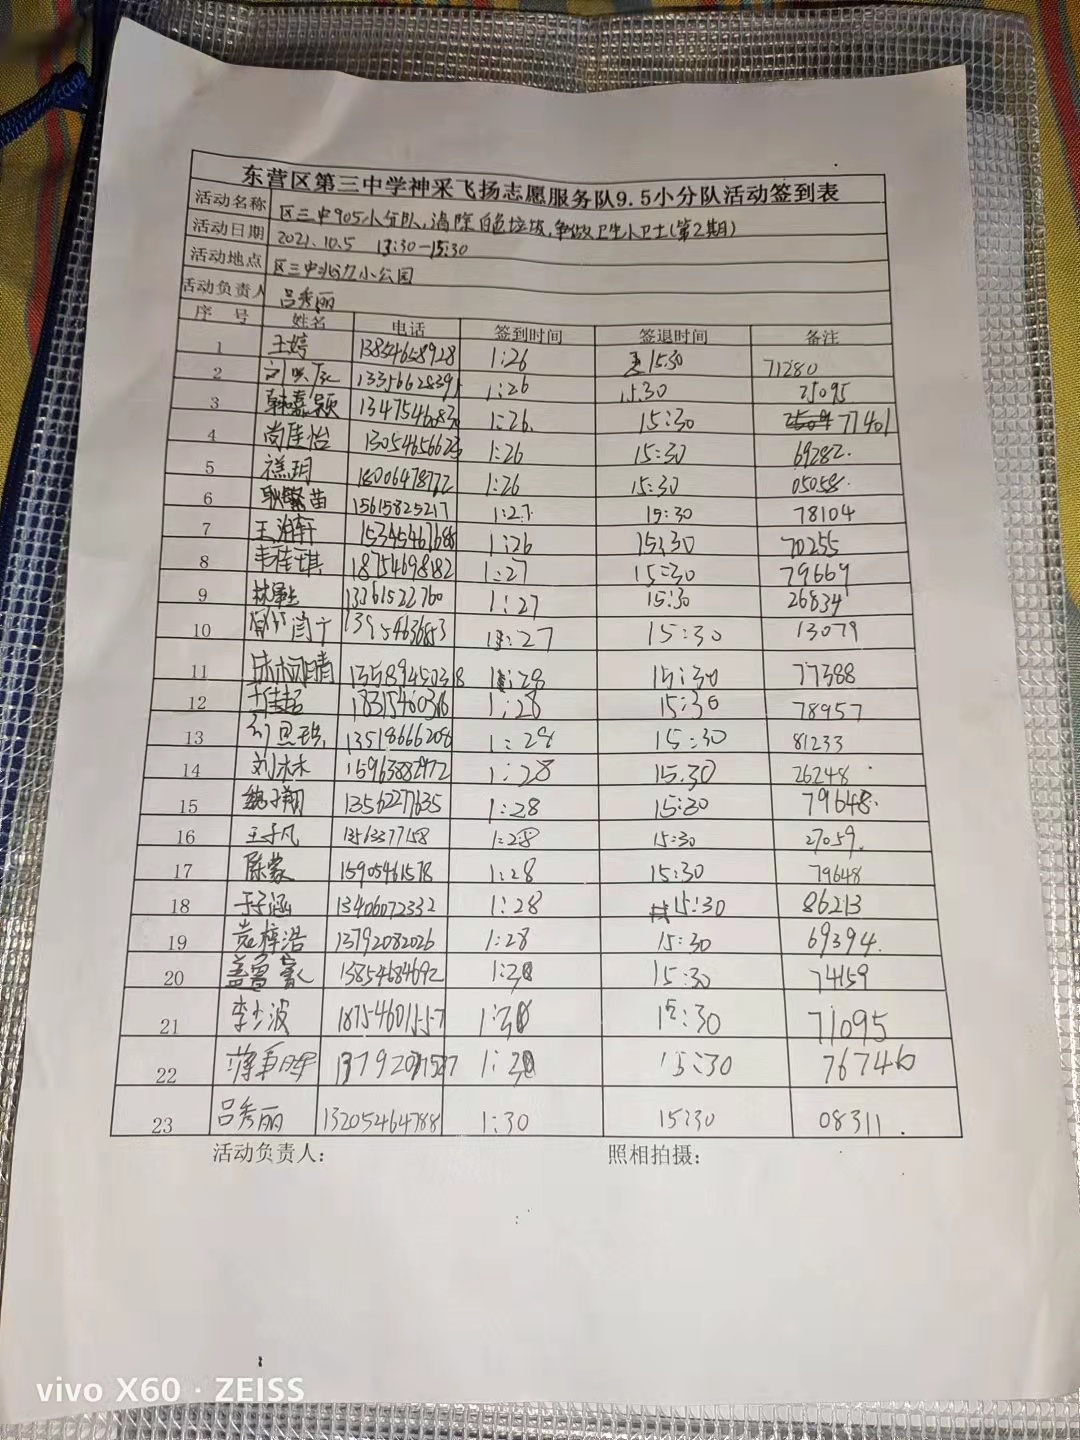 东营区第三中学神采飞扬志愿服务队9.5小分队活动签到表
活动名称 区三中905小分队,清除白色垃圾,争做卫生小卫士(第2期)
活动日期 2021.10.5 13:30—15:30
活动地点 区三中 小公园
活动负责人 吕秀丽
序 号 姓名 电话 签到时间 签退时间 备注
1 王婷 13854658928 1:26 15:30 71280
2 1:26 15:30 25095
3 韩嘉颖 1:26. 15:30 77401
4 尚佳怡 13054656623 1:26 15:30 69282.
5 禚玥 18006478772 1:26 15:30 05058.
6 苗 15615825217 1:27 15:30 78104
7 王 轩 1:26 15:30 70255
8 韦佳琪 18754698182 1:27 15:30 79669
9 13361522760 1:27 15:30 26834
10 1:27 15:30 13079
11 13589450318 1:28 15:30 77388
12 1:28 15:30 78957
13 13518666208 1:28 15:30 81233
14 刘木木 15963882972 1:28 15.30 26248
15 魏子翔 13562277635 1:28 15:30 79648.
16 王子凡 13563377158 1:28 15:30 27059.
17 陈蒙 15905461578 1:28 15:30 79648
18 于子涵 13406072332 1:28 15:30 86213
19 袁梓浩 13792082026 1:28 15:30 69394.
20 盖 13854684692 1:30 15:30 74159
21 李少波 18754601557 1:30 15:30 71095
22 1:30 15:30 76746
23 吕秀丽 13205464788 1:30 15:30 08311.
活动负责人: 照相拍摄:
vivo X60 · ZEISS